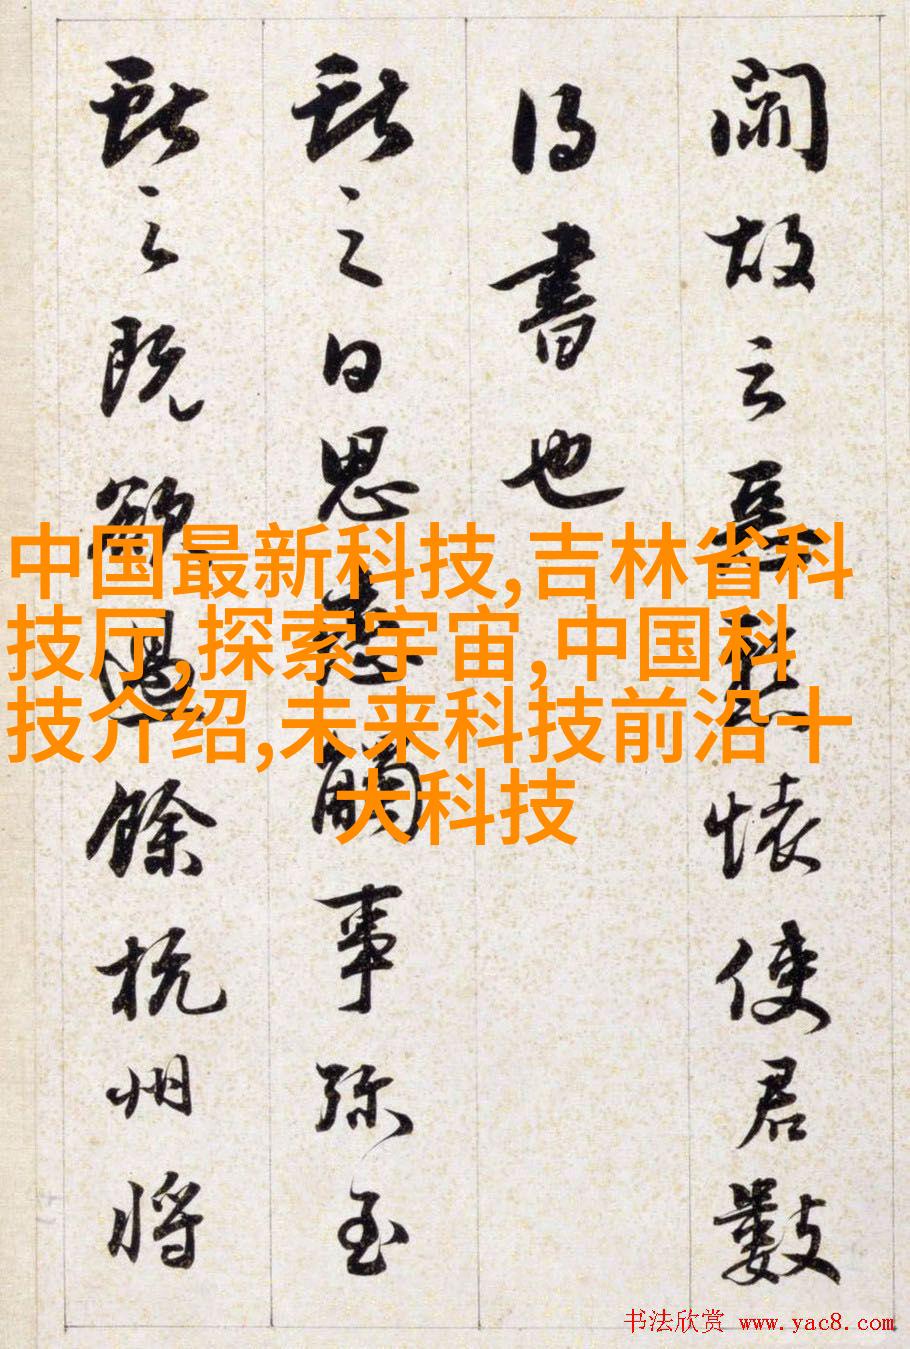 故云
懐使君數
得書也
獻之日思戀觸事弥至
獻之既欲過餘杭州將
中国最新科技,吉林省科
技厅,探索宇宙,中国科
技介绍,未来科技前沿十
大科技
书法欣赏 www.yac8.com